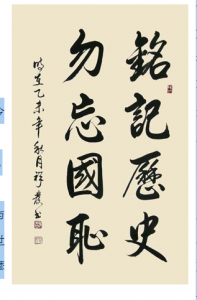 銘記歷史
勿忘國恥
時在乙未年秋月祥農書